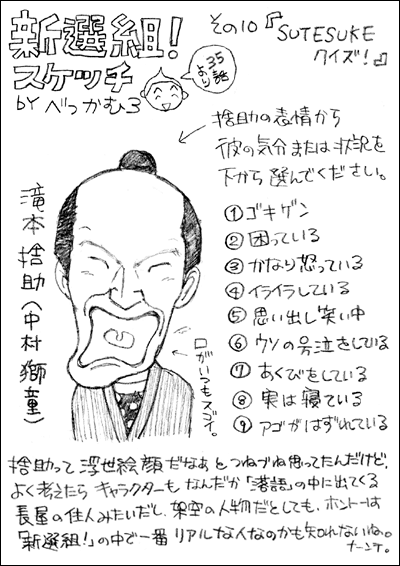 新選組!
スケッチ
BY べっかむ3
35話より
その10『SUTESUKE
クイズ!』
捨助の表情から
彼の気分または状況を
下から選んでください。
①ゴキゲン
②困っている
③かなり怒っている
④イライラしている
⑤思い出し笑い中
⑥ウソの号泣をしている
⑦あくびをしている
⑧実は寝ている
⑨アゴがはずれている
滝本捨助(中村獅童)
口がいつもスゴイ。
捨助って浮世絵顔だなぁとつねづね思ってたんだけど、
よく考えたらキャラクターもなんだか「落語」の中に出てくる
長屋の住人みたいだし、架空の人物だとしても、ホントーは
「新選組!」の中で一番リアルな人なのかも知れないね。
ナーンテ。